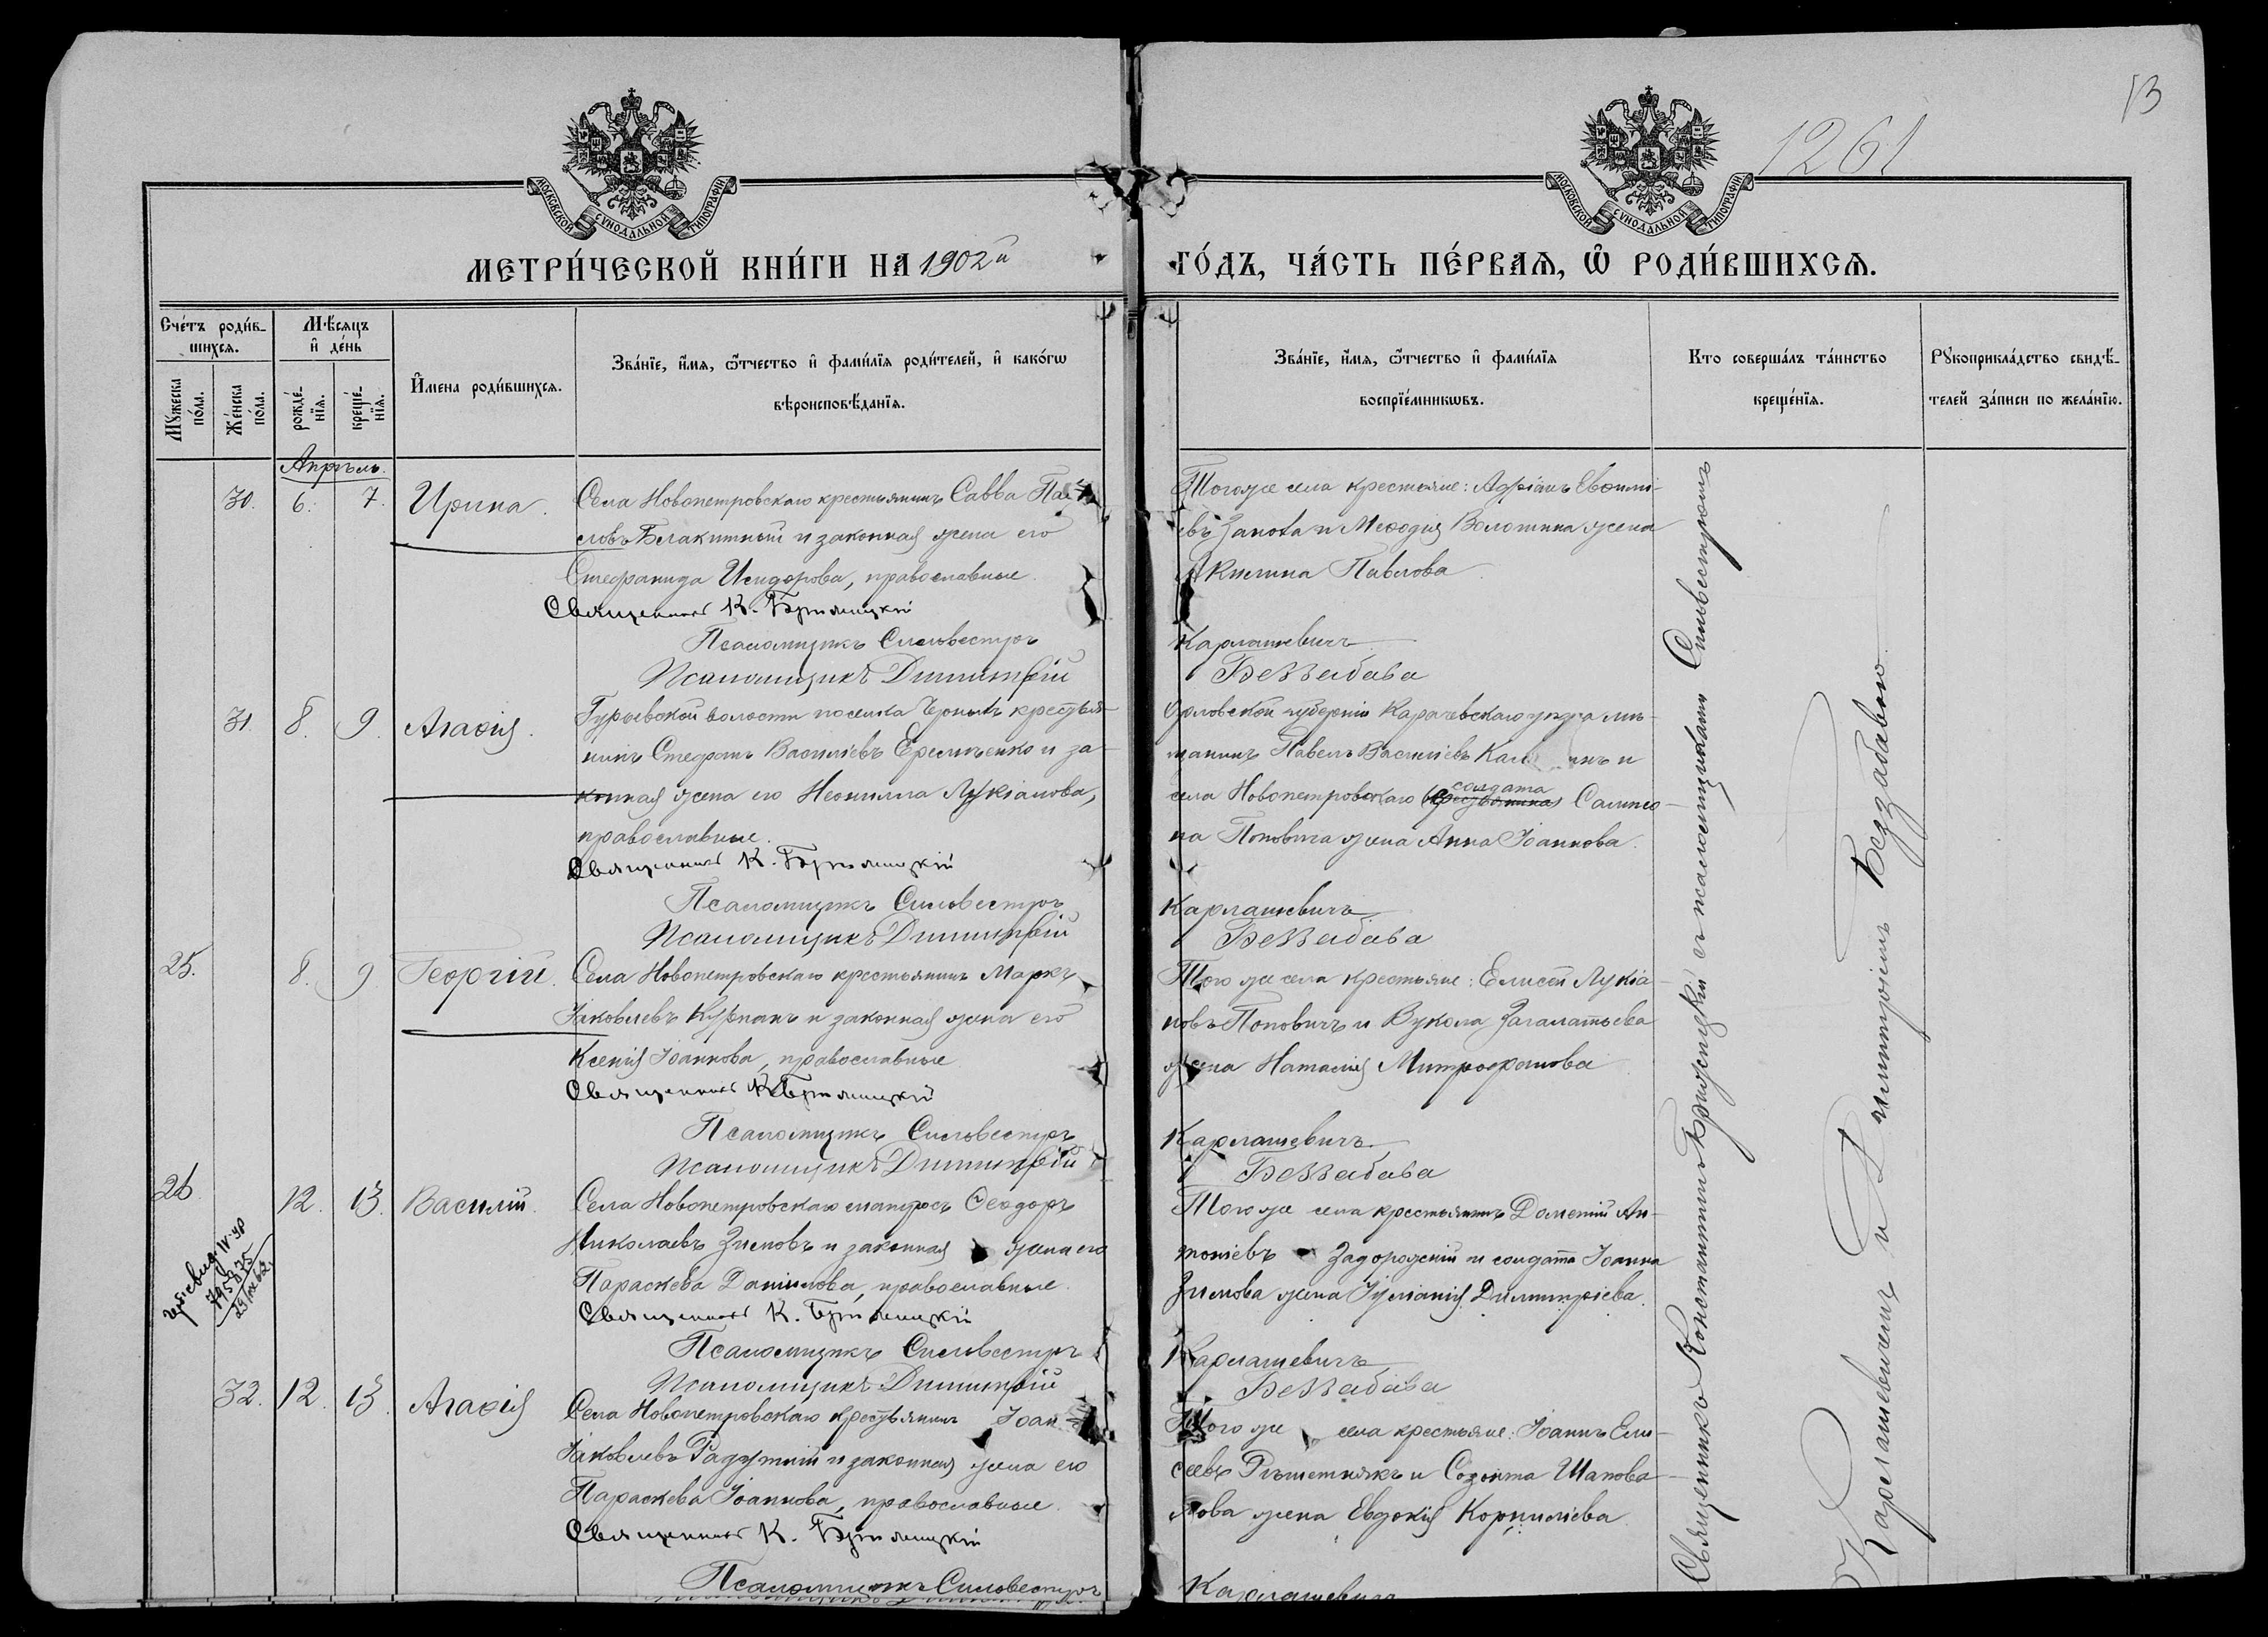 13
1261
МОСКОВСКОЙ СУНОДАЛЬНОЙ ТИПОГРАФІИ
МОСКОВСКОЙ СУНОДАЛЬНОЙ ТИПОГРАФІИ
МЕТРИ́ЧЕСКОЙ КНИ́ГИ НА 1902й
ГО́ДЪ, ЧА́СТЬ ПЕ́РВАѦ, Ѡ҆ РОДИ́ВШИХСѦ.
Сче́тъ роди́в-
шихсѧ.
Мѣ́сѧцъ
и҆ де́нь
Мꙋ́жеска
по́ла.
Же́нска
по́ла.
рожде́-
нїѧ.
креще́-
нїѧ.
И҆мена роди́вшихсѧ.
Зва́нїе, и҆́мѧ, ѻ҆́тчество и҆ фами́лїѧ роди́телей, и҆ како́гѡ
вѣроисповѣ́данїѧ.
Зва́нїе, и҆́мѧ, ѻ҆́тчество и҆ фами́лїѧ
воспрїе́мникѡвъ.
Кто соверша́лъ та́инство
креще́нїѧ.
Рꙋкоприкла́дство свидѣ́-
телей за́писи по жела́нїю.
Апрѣль.
30. 6. 7. Ирина.
Села Новопетровскаго крестьянинъ Савва Пав-
ловъ Блакитный и законная жена его
Стефанида Исидорова, православные.
Священникъ К.
Псаломщикъ Сильвестръ
Псаломщикъ Димитрій
Того же села крестьяне: Адріанъ Евѳимі-
евъ и Меѳодія Волошина жена
Акилина Павлова
Карлашевичъ
Беззабава
31. 8. 9. Агаѳія.
Гурьевской волости поселка крестья-
нинъ Стефанъ Василіевъ Еремченко и за-
конная жена его Неонилла Лукіанова,
православные.
Священникъ К.
Псаломщикъ Сильвестръ
Псаломщикъ Димитрій
Орловской губерніи Карачевскаго уѣзда мѣ-
щанинъ Павелъ Василіевъ и
солдата
села Новопетровскаго крестьянина Сампсо-
на Поповича жена Анна Іоаннова.
Карлашевичъ
Беззабава
25. 8. 9. Георгій.
Села Новопетровскаго крестьянинъ Маркъ
Іаковлевъ Курпанъ и законная жена его
Ксенія Іоаннова, православные
Священникъ К.
Псаломщикъ Сильвестръ
Псаломщикъ Димитрій
Того же села крестьяне: Елисей Лукіа-
новъ Поповичъ и Вукола
жена Наталія Митрофанова
Карлашевичъ
Беззабава
26 12. 13. Василій.
Села Новопетровскаго матросъ Ѳеодоръ
Николаевъ Зимовъ и законная жена его
Параскева Даніилова, православные.
Священникъ К.
Псаломщикъ Сильвестръ
Псаломщикъ Димитрій
Того же села крестьянинъ Дометій Ан-
тоніевъ Задорожній и солдата Іоанна
Зимова жена Іуліанія Димитріева.
Карлашевичъ
Беззабава
32. 12. 13. Агаѳія
Села Новопетровскаго крестьянинъ Іоан
Іаковлевъ Радутній и законная жена его
Параскева Іоаннова, православные.
Священникъ К.
Псаломщикъ Сильвестръ
Того же села крестьяне: Іоаннъ Ели-
сеевъ Рѣшетнякъ и Созонта Шапова-
лова жена Евдокія Корниліева
Карлашевичъ
Священникъ Константинъ съ псаломщиками Сильвестромъ
Карлашевичемъ и Димитріемъ Беззабавою.